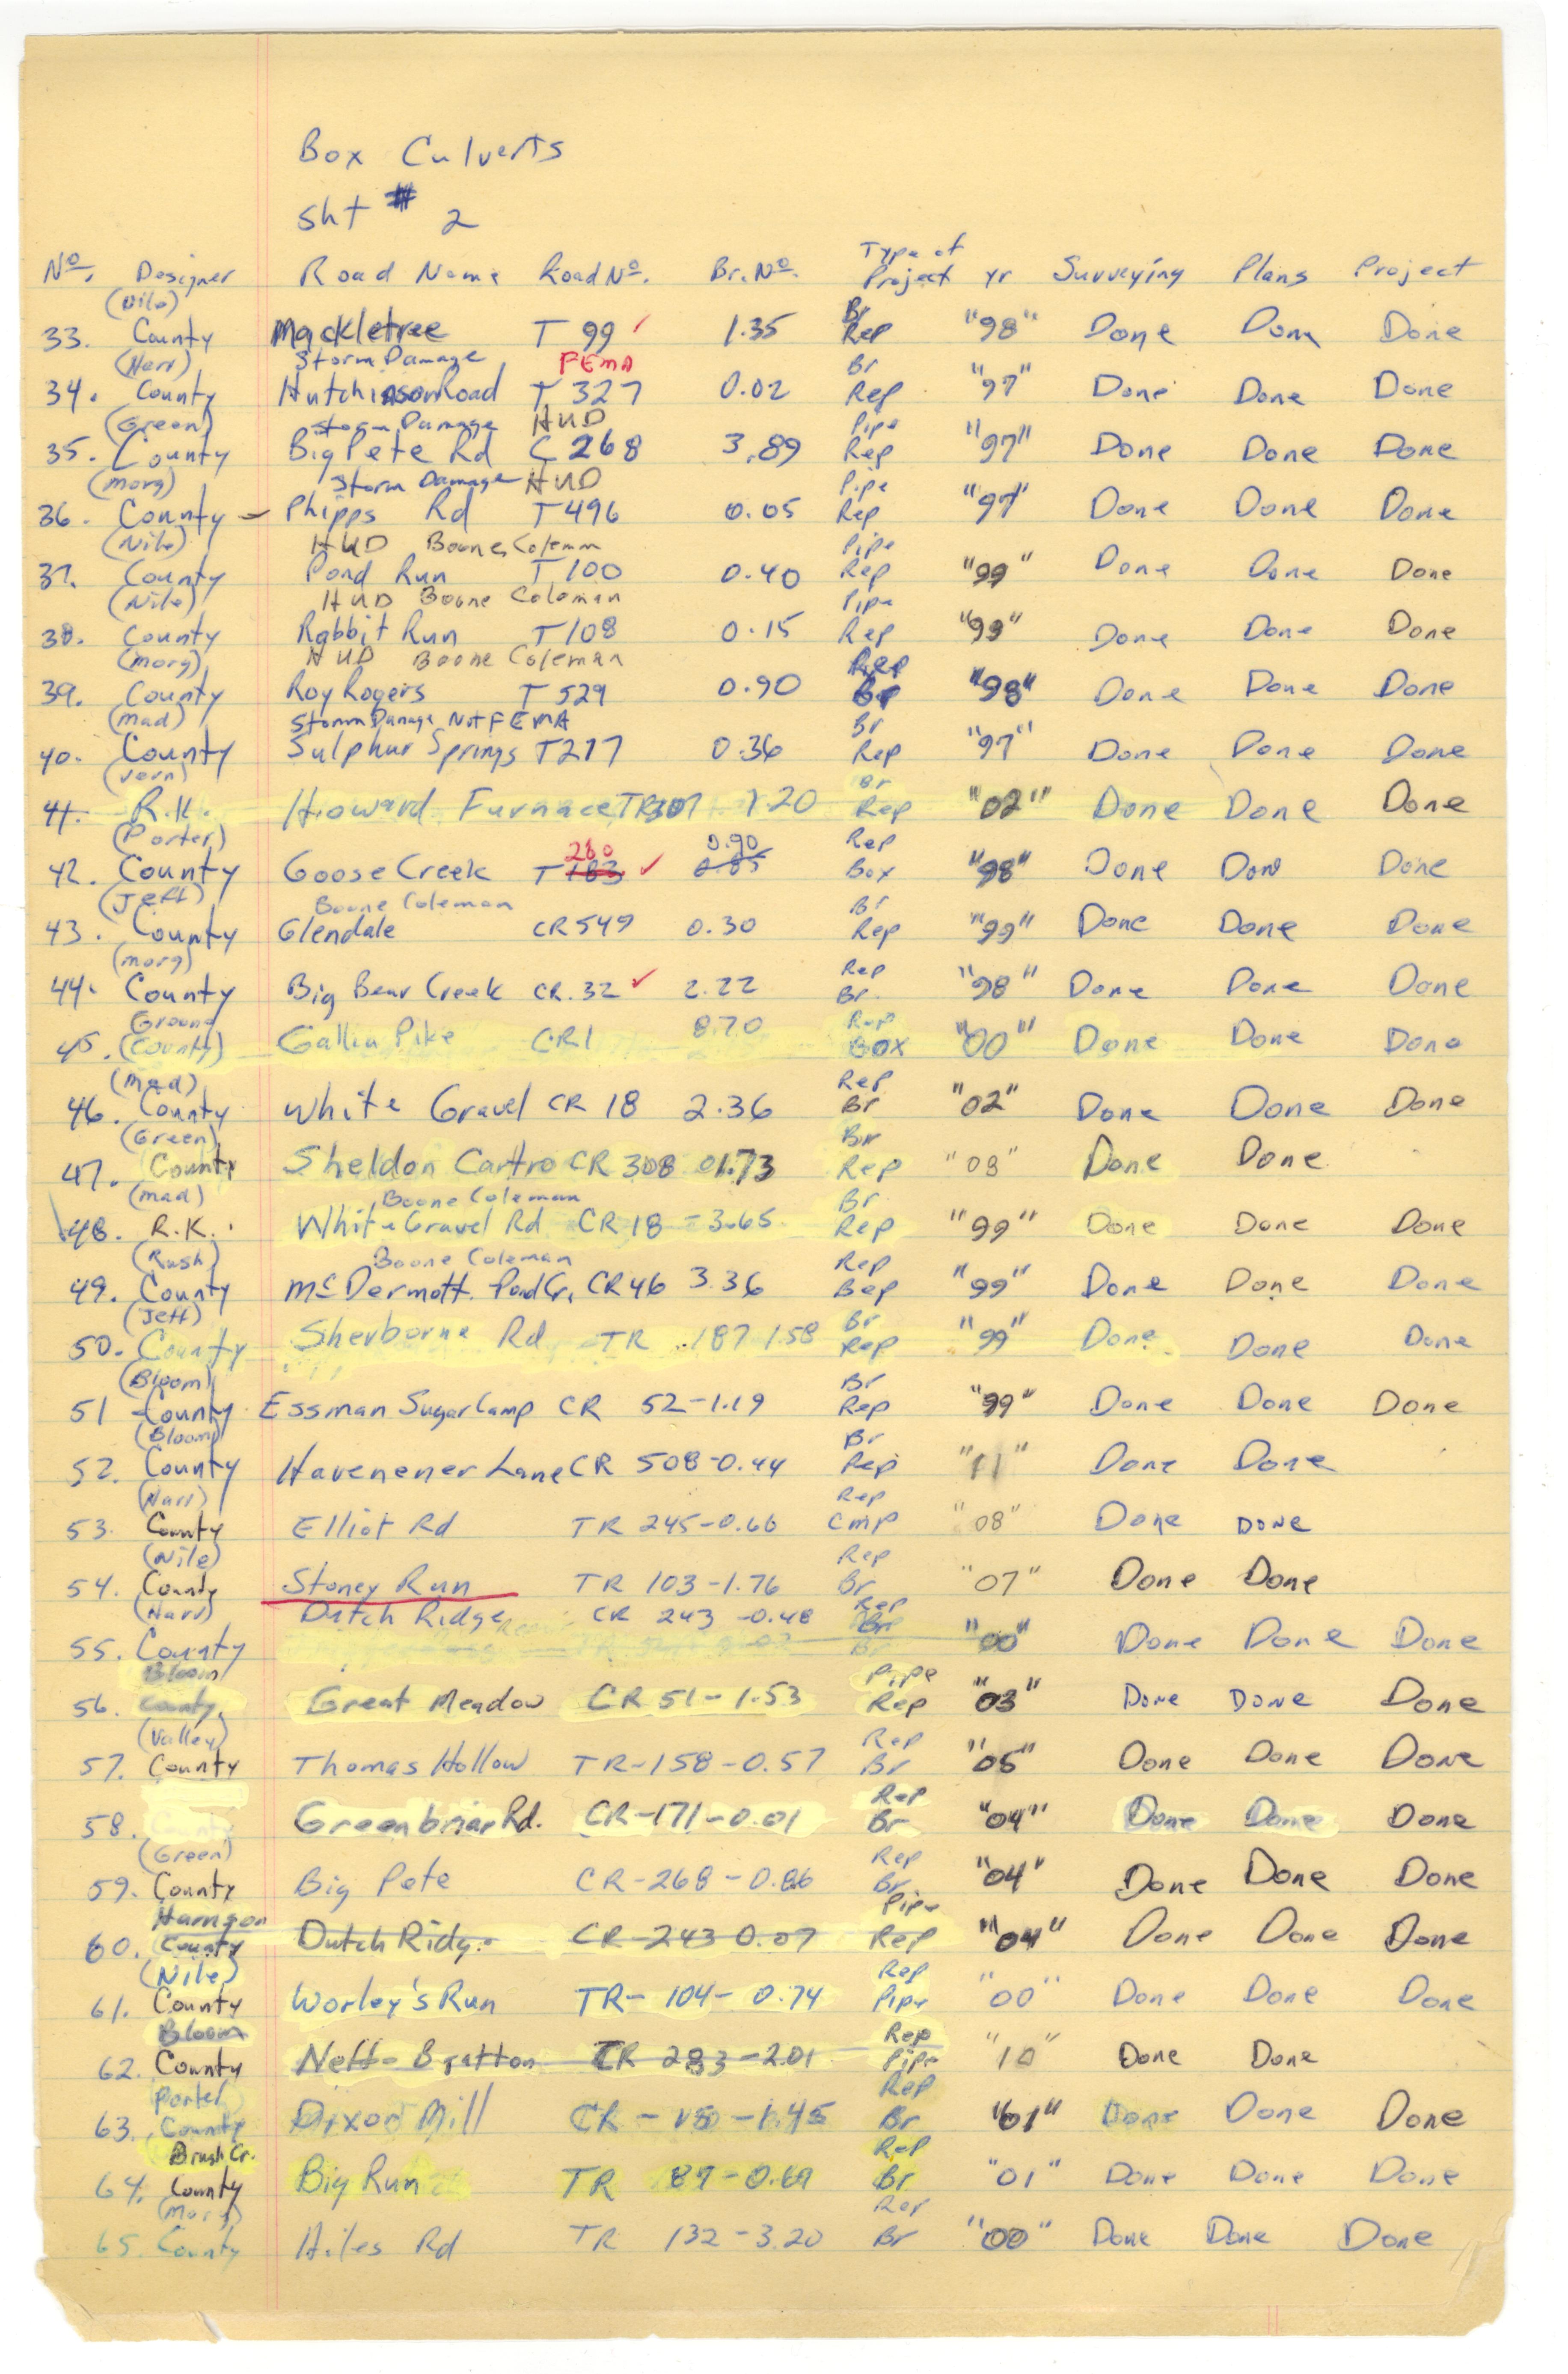 Box Culverts
Sht # 2
Type of
No. Designer Road Name Road No. Br. No. Project yr Surveying Plans Project
(Nile) Br
33. County Mackletree T 99 ✓ 1.35 Rep "98" Done Done Done
(Harr) Storm Damage FEMA Br
34. County Hutchinson Road T 327 0.02 Rep "97" Done Done Done
(Green) Storm Damage HUD Pipe
35. County Big Pete Rd C 268 3.89 Rep "97" Done Done Done
(Morg) Storm Damage HUD Pipe
36. County - Phipps Rd T 496 0.05 Rep "97" Done Done Done
(Nile) HUD Boone Coleman Pipe
37. County Pond Run T 100 0.40 Rep "99" Done Done Done
(Nile) HUD Boone Coleman Pipe
38. County Rabbit Run T 108 0.15 Rep "99" Done Done Done
(Morg) HUD Boone Coleman Rep
39. County Roy Rogers T 529 0.90 Br "98" Done Done Done
(Mad) Storm Damage Not FEMA Br
40. County Sulphur Springs T277 0.36 Rep "97" Done Done Done
(Vern) Br
41. R.K. Howard Furnace TR307 1.20 Rep "02" Done Done Done
(Porter) 260 0.90 Rep
42. County Goose Creek T 183 ✓ 0.85 Box "98" Done Done Done
(Jeff) Boone Coleman Br
43. County Glendale CR 549 0.30 Rep "99" Done Done Done
(Morg) Rep
44. County Big Bear Creek CR. 32 ✓ 2.22 Br. "98" Done Done Done
Green Rep
45. (County) Gallia Pike CR1 8.70 Box "00" Done Done Done
(Mad) Rep
46. County White Gravel CR 18 2.36 Br "02" Done Done Done
(Green) Br
47. County Sheldon Cartro CR 308 01.73 Rep "08" Done Done
(Mad) Boone Coleman Br
48. R.K. White Gravel Rd CR 18 - 3.65 Rep "99" Done Done Done
(Rush) Boone Coleman Rep
49. County McDermott Pond Cr. CR 46 3.36 Bep "99" Done Done Done
(Jeff) Br
50. County Sherborne Rd TR 187 1.58 Rep "99" Done Done Done
(Bloom) Br
51 County Essman Sugar Camp CR 52-1.19 Rep "99" Done Done Done
(Bloom) Br
52. County Havenener Lane CR 508-0.44 Rep "11" Done Done
(Harr) Rep
53. County Elliot Rd TR 245-0.66 Cmp "08" Done Done
(Nile) Rep
54. County Stoney Run TR 103-1.76 Br "07" Done Done
(Harr) Dutch Ridge CR 243 -0.48 Rep
55. County Br "00" Done Done Done
Bloom Pipe
56. County Great Meadow CR 51-1.53 Rep "03" Done Done Done
(Valley) Rep
57. County Thomas Hollow TR-158-0.57 Br "05" Done Done Done
Rep
58. Greenbriar Rd. CR-171-0.01 Br "04" Done Done Done
(Green) Rep
59. County Big Pete CR-268-0.86 Br "04" Done Done Done
Harrison Pipe
60. County Dutch Ridge CR-243 0.07 Rep "04" Done Done Done
(Nile) Rep
61. County Worley's Run TR-104-0.74 Pipe "00" Done Done Done
Bloom Rep
62. County Neff-Bratton CR 283-2.01 Pipe "10" Done Done
Porter Rep
63. County Dixon Mill CR-15-1.45 Br "01" Done Done Done
Brush Cr. Rep
64. County Big Run TR 87-0.69 Br "01" Done Done Done
(Morg) Rep
65. County Hiles Rd TR 132-3.20 Br "00" Done Done Done